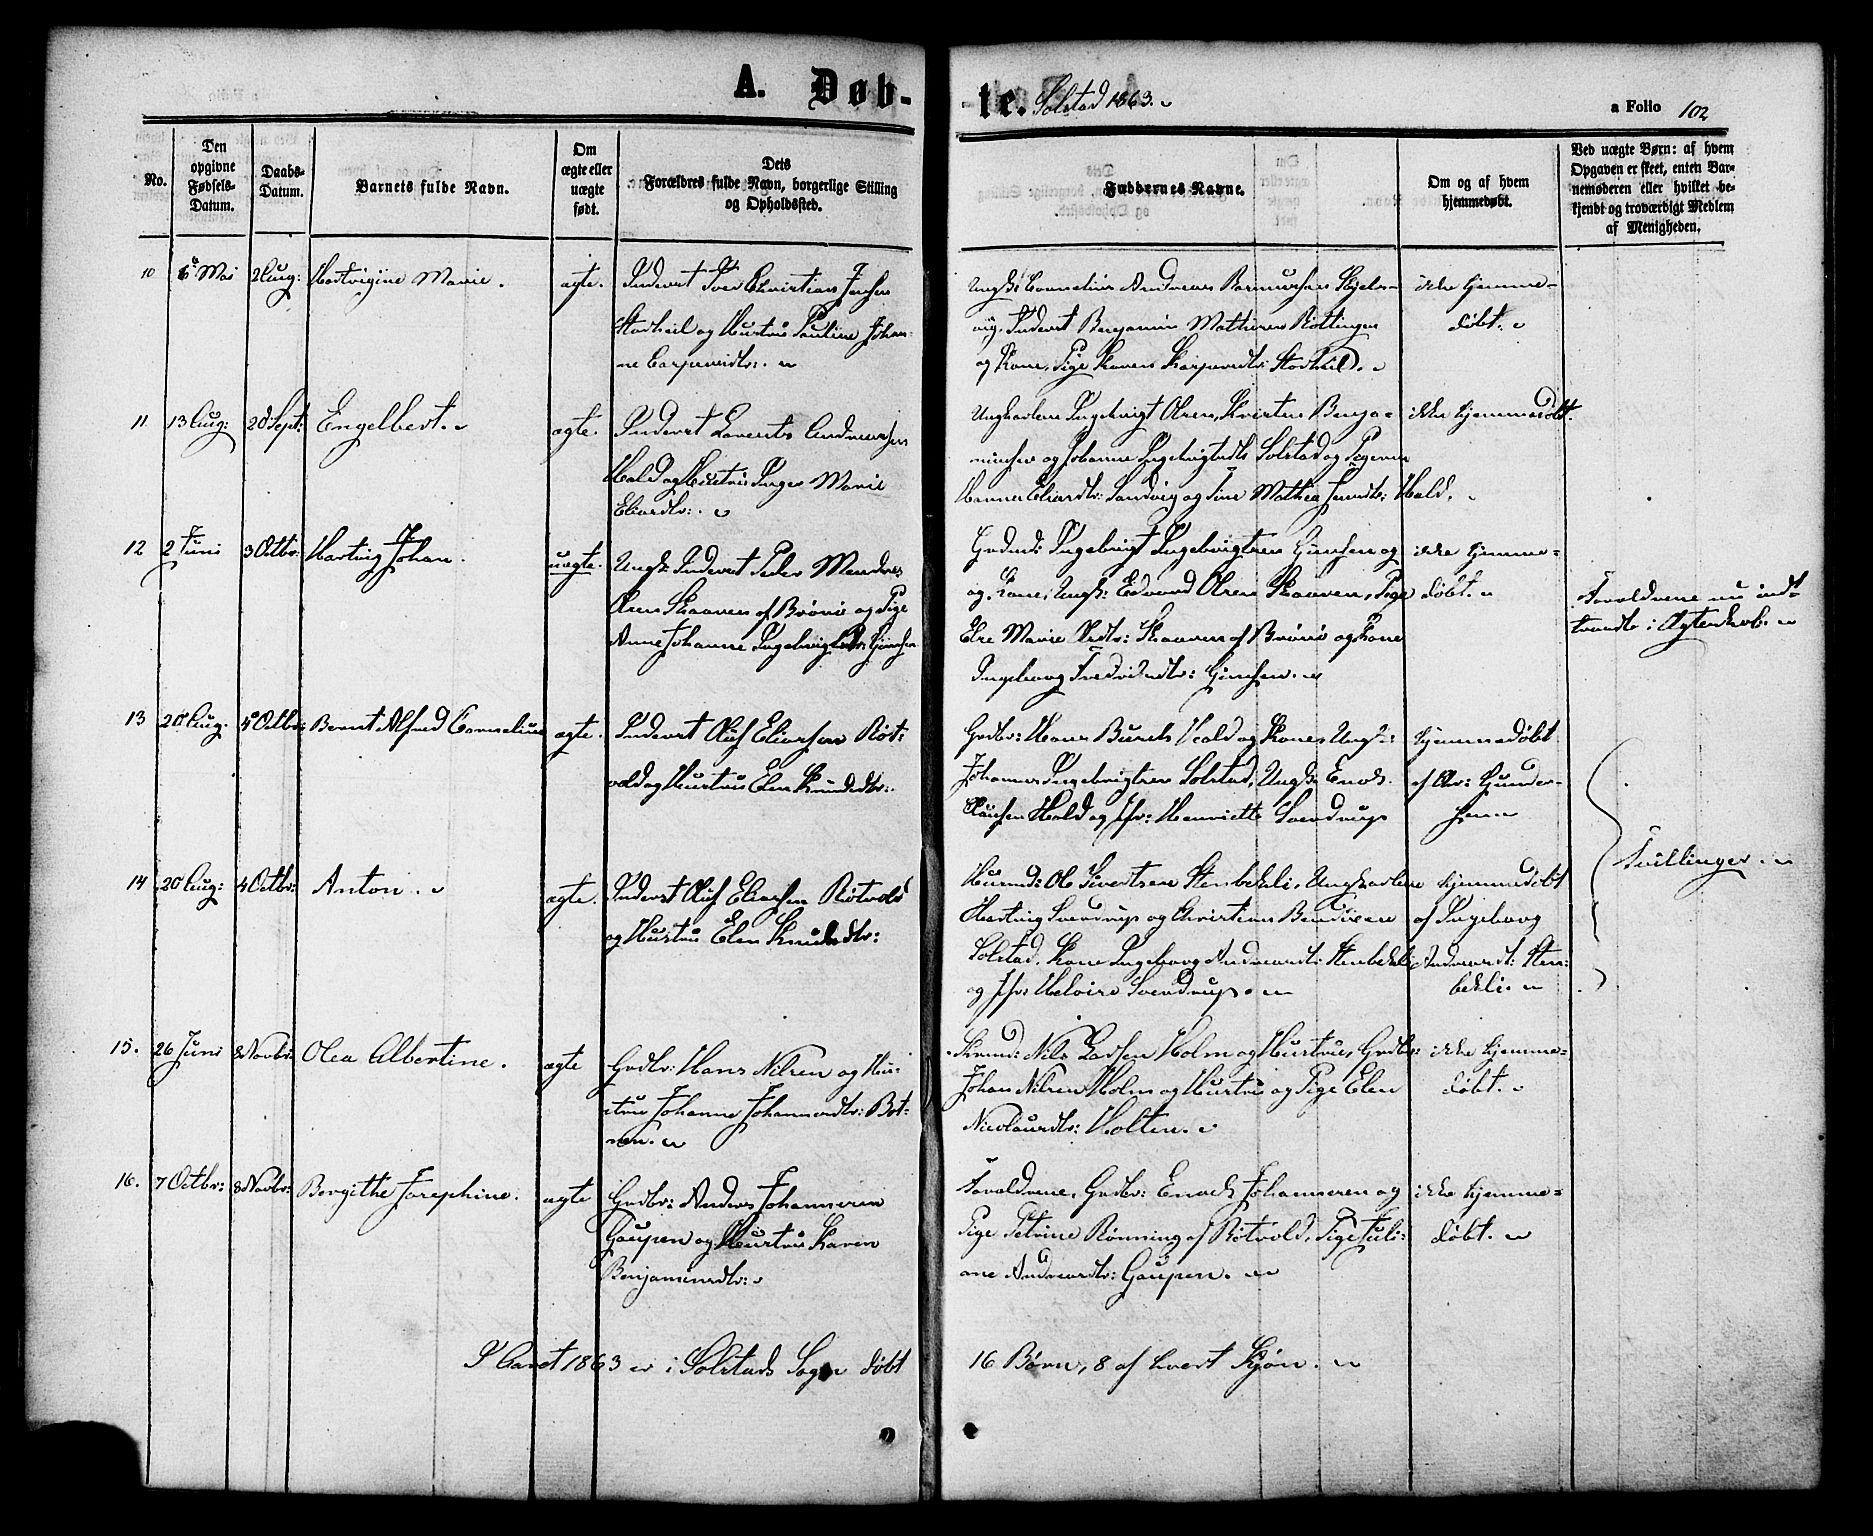 A. Døb-
te. Solstad 1863.
a Folio 102
No.
Den opgivne Fødsels-Datum.
Daabs-Datum.
Barnets fulde Navn.
Om ægte eller uægte født.
Dets Forældres fulde Navn, borgerlige Stilling og Opholdssted.
Faddernes Navne.
Om og af hvem hjemmedøbt.
Ved uægte Børn: af hvem Opgaven er skeet, enten Barnemoderen eller hvilket bekjendt og troværdigt Medlem af Menigheden.
10 Mai 2 Aug: Hedvigine Marie. ægte. Inderst Iver Christian Jensen
Storheil og Hustru Pauline Johan-
ne
Ungk: Cornelius Andreas Rasmussen
Inderst Benjamin Mathisen
og Kone, Pige Karen Storheil.
ikke hjemme-
døbt.
11 13 Aug: 20 Sept: Engelbert. ægte. Inderst Lorents Andreassen
Hald og Hustru Inger Marie
Eliasdtr:.
Ungkarlene Ingebrigt Olsen, Sivert Benja-
minsen og Johanne Ingebrigtsdtr Solstad og Pigerne
Hanna Eliasdtr: Sandvig og Sine Mathea Jensdtr: Hald.
ikke hjemmedøbt.
12 2 Juni 3 Octbr: Hartvig Johan. uægte. Ungk: Inderst Peder Mendres
Olsen Skaaren af Brønø og Pige
Anne Johanne Ingebrigtsdtr:
Grdmd: Ingebrigt Ingebrigtsen og
og Kone, Ungk: Edvard Olsen Skaaren, Pige
Else Marie Olsdtr: Skaaren af Brønø og Kone
Ingeborg
ikke hjemme-
døbt.
Forældrene nu ind-
traadte i Ægteskab.
13 20 Aug: 4 Octbr: Bernt Alfred Cornelius ægte. Inderst Oluf Eliassen Røt-
vold og Hustru Elen Knudsdtr:.
Grdbr: Hans Hald og Kone, Ungk:
Johannes Ingebrigtsen Solstad, Ungk: Enok
Hald og Jfr: Henriette Svendrup
hjemmedøbt
af Gunder-
sen
14 20 Aug: 4 Octbr: Anton. ægte. Inderst Oluf Eliassen Røtvold
og Hustru Elen Knudsdtr:
Husmd: Ole Sivertsen Stenbekli, Ungkarlene
Hartvig Svendrup og Christian Bendixen
Solstad, Kone Ingeborg Andreasdtr: Stenbekli
og Jfr: Heloise Svendrup.
hjemmedøbt
af Ingeborg
Andreasdt: Sten-
bekli.
Tvillinger.
15. 26 Juni 8 Novbr: Olea Albertine. ægte Grdbr: Hans Nilsen og Hu-
stru Johanne Johannesdtr: Bot-
nen.
Nils Larsen Holm og Hustru, Grdbr:
Johan Nilsen Holm og Hustru og Pige Elen
Nicolausdtr: Holten.
ikke hjemme-
døbt.
16. 7 Octbr: 8 Novbr: Bergithe Josephine. ægte Grdbr: Anders Johannesen
Gaupen og Hustru Karen
Benjaminsdtr:
Forældrene, Grdbr: Enock Johannesen og
Pige Petrine Rønning af Røtvold, Pige Juli-
ane Andreasdtr: Gaupen.
ikke hjemme-
døbt.
I Aaret 1863 er i Solstads Sogn døbt
16 Børn, 8 af hvert Kjøn.